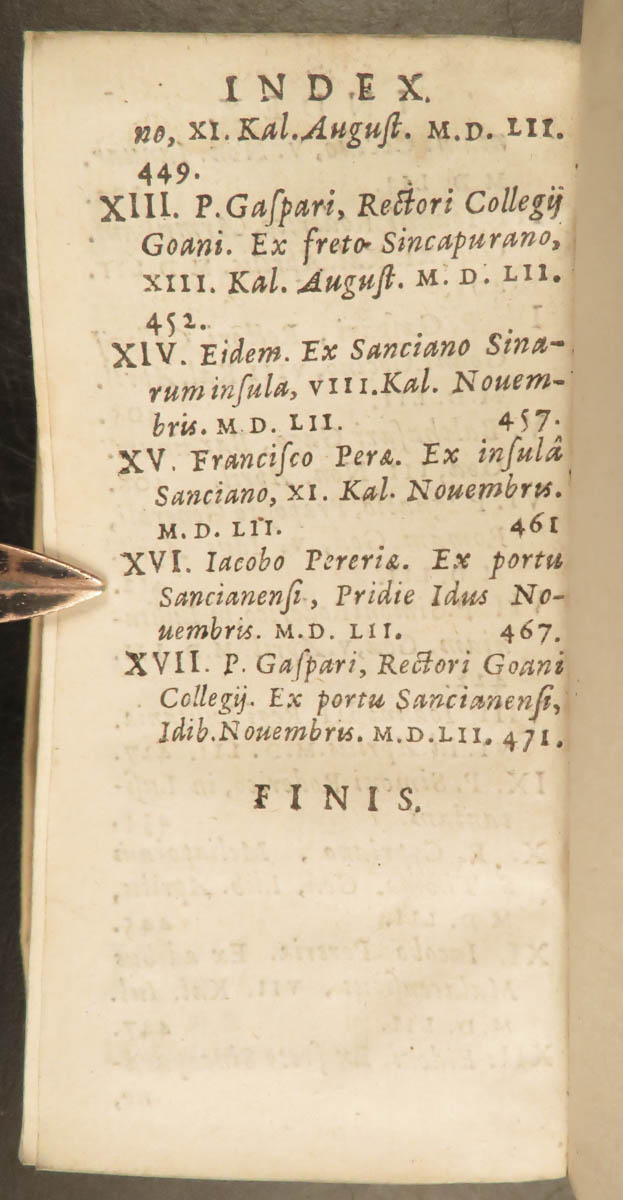 INDEX.
no, XI. Kal. Auguſt. M. D. LII.
449.
XIII. P. Gaſpari, Rectori Collegij
Goani. Ex freto Sincapurano,
XIII. Kal. Auguſt. M. D. LII.
452.
XIV. Eidem. Ex Sanciano Sina-
rum inſula, VIII. Kal. Nouem-
bris. M. D. LII. 457.
XV. Franciſco Peræ. Ex inſulâ
Sanciano, XI. Kal. Nouembris.
M. D. LII. 461
XVI. Iacobo Pereriæ. Ex portu
Sancianenſi, Pridie Idus No-
uembris. M. D. LII. 467.
XVII. P. Gaſpari, Rectori Goani
Collegij. Ex portu Sancianenſi,
Idib. Nouembris. M. D. LII. 471.
FINIS.